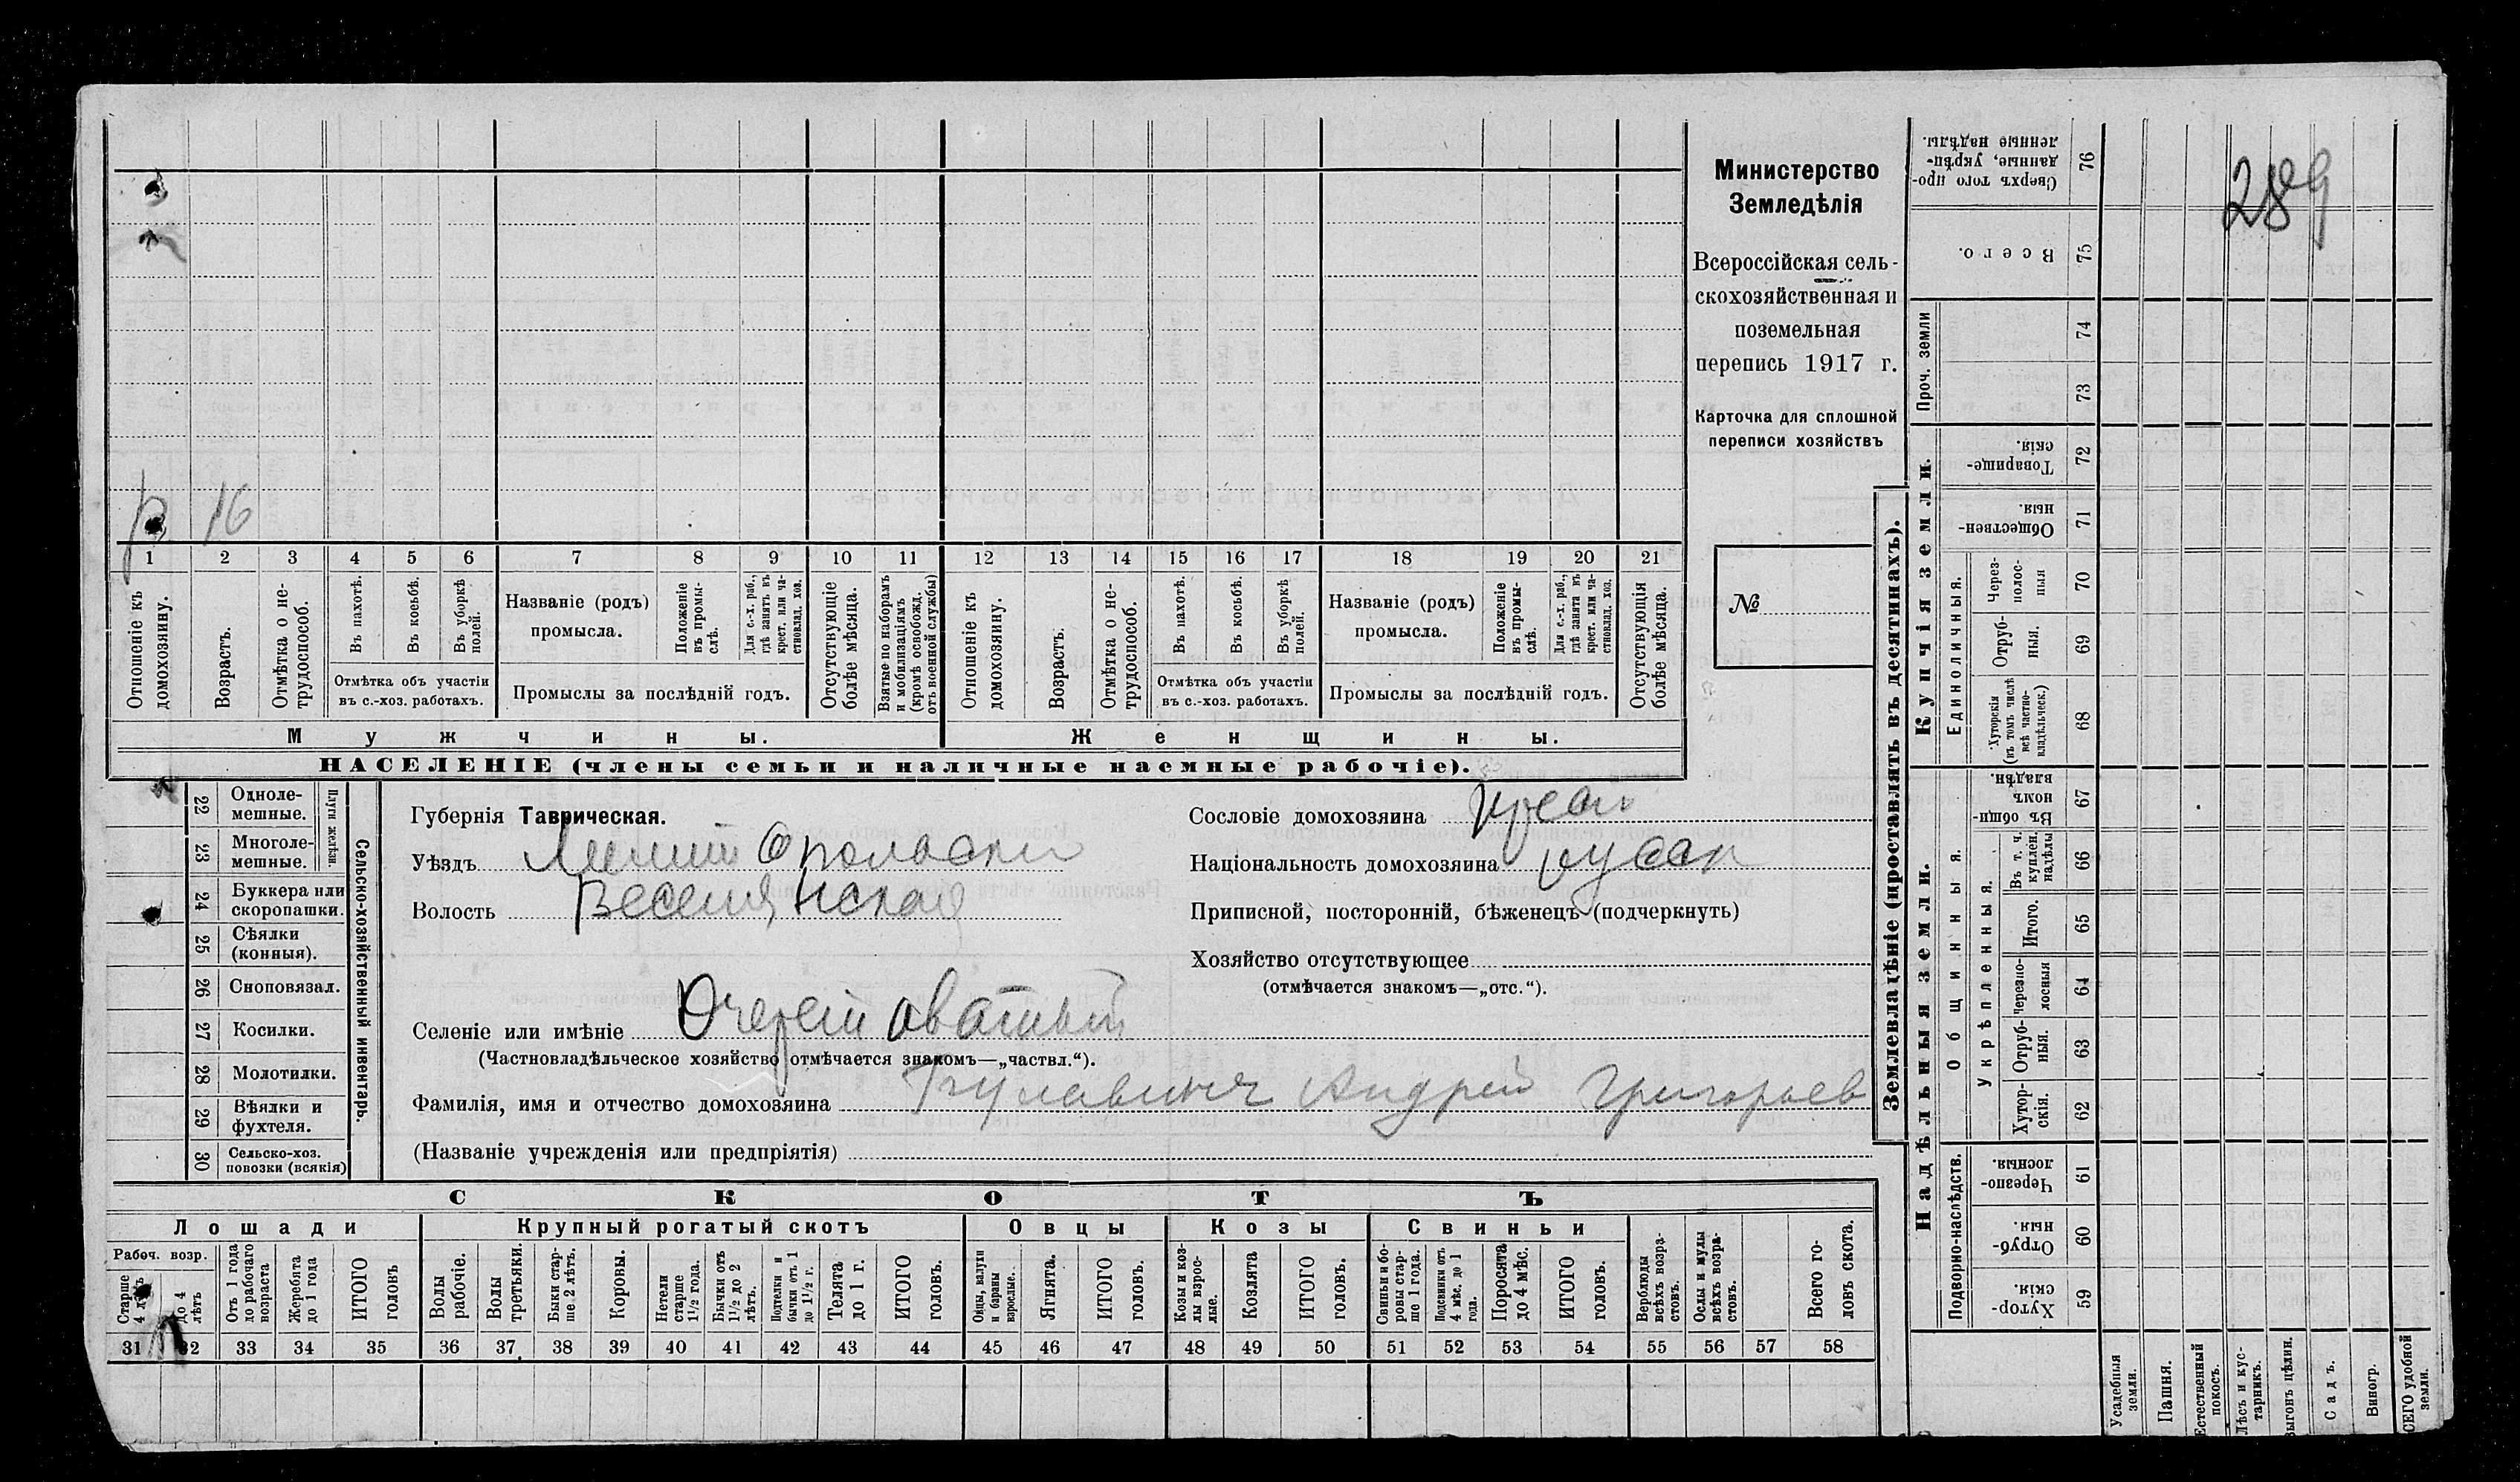 289
Министерство
Земледѣлія
Всероссійская сель-
скохозяйственная и
поземельная
перепись 1917 г.
Карточка для сплошной
переписи хозяйствъ
№
р 16
1 2 3 4 5 6 7 8 9 10 11 12 13 14 15 16 17 18 19 20 21
Отношеніе къ домохозяину.
Возрастъ.
Отмѣтка о не-трудоспособ.
Въ пахотѣ.
Въ косьбѣ.
Въ уборкѣ полей.
Отмѣтка объ участіи
въ с.-хоз. работахъ.
Названіе (родъ)
промысла.
Положеніе въ промы-слѣ.
Для с.-х. раб., гдѣ занятъ въ крест. или ча-стновлад. хоз.
Промыслы за послѣдній годъ.
Отсутствующіе болѣе мѣсяца.
Взятые по наборамъ и мобилизаціямъ (кромѣ освобожд. отъ военной службы)
Отношеніе къ домохозяину.
Возрастъ.
Отмѣтка о не-трудоспособ.
Въ пахотѣ.
Въ косьбѣ.
Въ уборкѣ полей.
Отмѣтка объ участіи
въ с.-хоз. работахъ.
Названіе (родъ)
промысла.
Положеніе въ промы-слѣ.
Для с.-х. раб., гдѣ занята въ крест. или ча-стновлад. хоз.
Промыслы за послѣдній годъ.
Отсутствующія болѣе мѣсяца.
Мужчины.
Женщины.
НАСЕЛЕНІЕ (члены семьи и наличные наемные рабочіе).
22 Одноле-мешные.
23 Многоле-мешные.
Плуги желѣзн.
24 Буккера или скоропашки.
25 Сѣялки (конныя).
26 Сноповязал.
27 Косилки.
28 Молотилки.
29 Вѣялки и фухтеля.
30 Сельско-хоз. повозки (всякія)
Сельско-хозяйственный инвентарь.
Губернія Таврическая.
Уѣздъ Мелитопольскій
Волость
Селеніе или имѣніе Очеретоватый
(Частновладѣльческое хозяйство отмѣчается знакомъ—„частвл.“).
Фамилія, имя и отчество домохозяина Андрей Григорьев
(Названіе учрежденія или предпріятія)
Сословіе домохозяина крест
Національность домохозяина русск
Приписной, посторонній, бѣженецъ (подчеркнуть)
Хозяйство отсутствующее
(отмѣчается знакомъ—„отс.“).
СКОТЪ
Лошади
Крупный рогатый скотъ
Овцы
Козы
Свиньи
Рабоч. возр.
Старше 4 лѣтъ
до 4 лѣтъ
Отъ 1 года до рабочаго возраста
Жеребята до 1 года
ИТОГО головъ
Волы рабочіе.
Волы третьяки.
Быки стар-ше 2 лѣтъ.
Коровы.
Нетели старше 1 1/2 года.
Бычки отъ 1 1/2 до 2 лѣтъ.
Подтелки и бычки отъ 1 до 1 1/2 г.
Телята до 1 г.
ИТОГО головъ.
Овцы, валухи и бараны взрослые.
Ягнята.
ИТОГО головъ.
Козы и коз-лы взрос-лые.
Козлята
ИТОГО головъ.
Свиньи и бо-ровы стар-ше 1 года.
Подсвинки отъ 4 мѣс. до 1 года.
Поросята до 4 мѣс.
ИТОГО головъ.
Верблюды всѣхъ возра-стовъ.
Ослы и мулы всѣхъ возра-стовъ.
Всего го-ловъ скота.
31 32 33 34 35 36 37 38 39 40 41 42 43 44 45 46 47 48 49 50 51 52 53 54 55 56 57 58
Землевладѣніе (проставлять въ десятинахъ).
Надѣльныя земли.
Купчія земли.
Проч. земли
Подворно-наслѣдств.
Общинныя.
Укрѣпленныя.
Единоличныя.
76 Сверхъ того про-данные, укрѣп-ленные надѣлы.
75 Всего.
74
73
72 Товарище-скія.
71 Обществен-ныя.
70 Через-полос-ныя
69 Отруб-ныя.
68 Хуторскія (въ томъ числѣ всѣ частно-владѣльческ.)
67 Въ общи-номъ владѣн.
66 Въ т. ч. куплен. надѣлы
65 Итого.
64 Черезпо-лосныя
63 Отруб-ныя.
62 Хутор-скія.
61 Черезпо-лосныя.
60 Отруб-ныя.
59 Хутор-скія.
Усадебныя земли.
Пашня.
Естественный покосъ.
Лѣсъ и кус-тарникъ.
Выгонъ цѣлин.
Садъ.
Виногр.
ВСЕГО удобной земли.